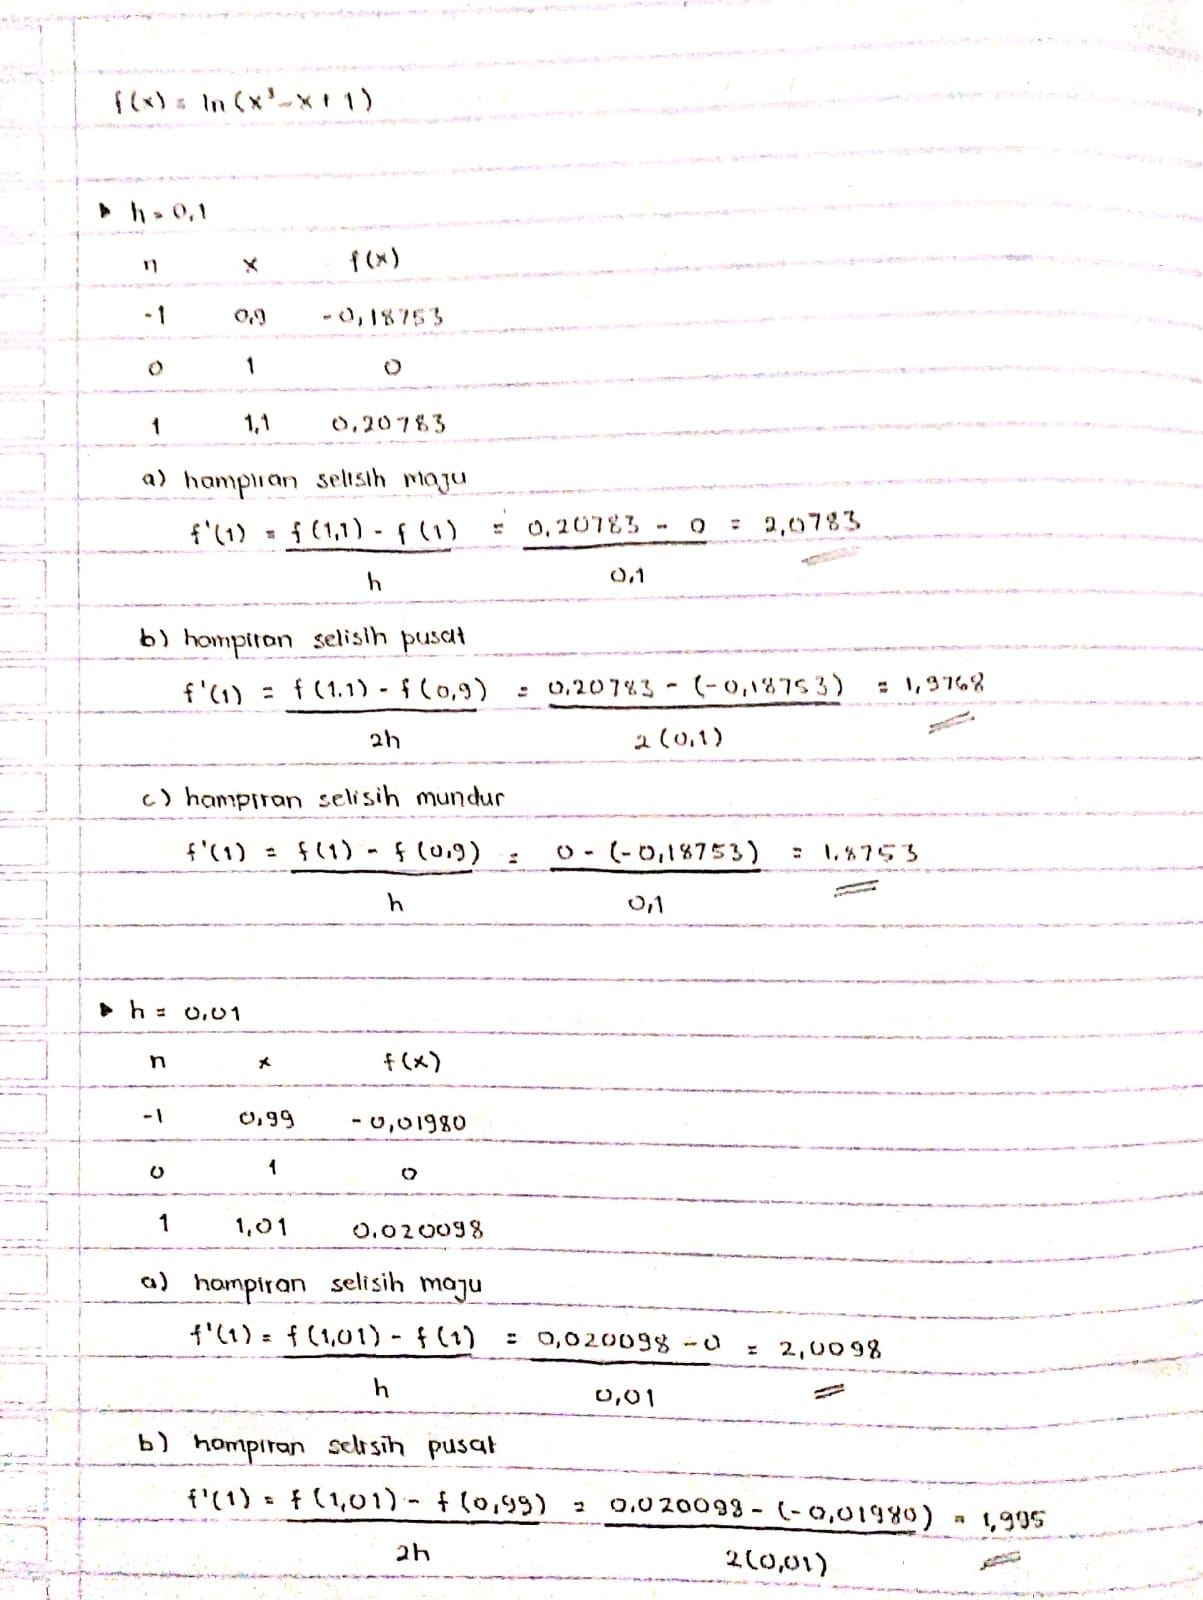 f(x) = ln (x³-x+1)
▸ h = 0,1
n x f(x)
-1 0,9 -0,18753
0 1 0
1 1,1 0,20783
a) hampiran selisih maju
f'(1) = f(1,1) - f(1) = 0,20783 - 0 = 2,0783
h 0,1
b) hampiran selisih pusat
f'(1) = f(1.1) - f(0,9) = 0,20783 - (-0,18753) = 1,9768
2h 2(0,1)
c) hampiran selisih mundur
f'(1) = f(1) - f(0,9) = 0 - (-0,18753) = 1,8753
h 0,1
▸ h = 0,01
n x f(x)
-1 0,99 -0,01980
0 1 0
1 1,01 0.020098
a) hampiran selisih maju
f'(1) = f(1,01) - f(1) = 0,020098 - 0 = 2,0098
h 0,01
b) hampiran selisih pusat
f'(1) = f(1,01) - f(0,99) = 0.020098 - (-0,01980) = 1,995
2h 2(0,01)